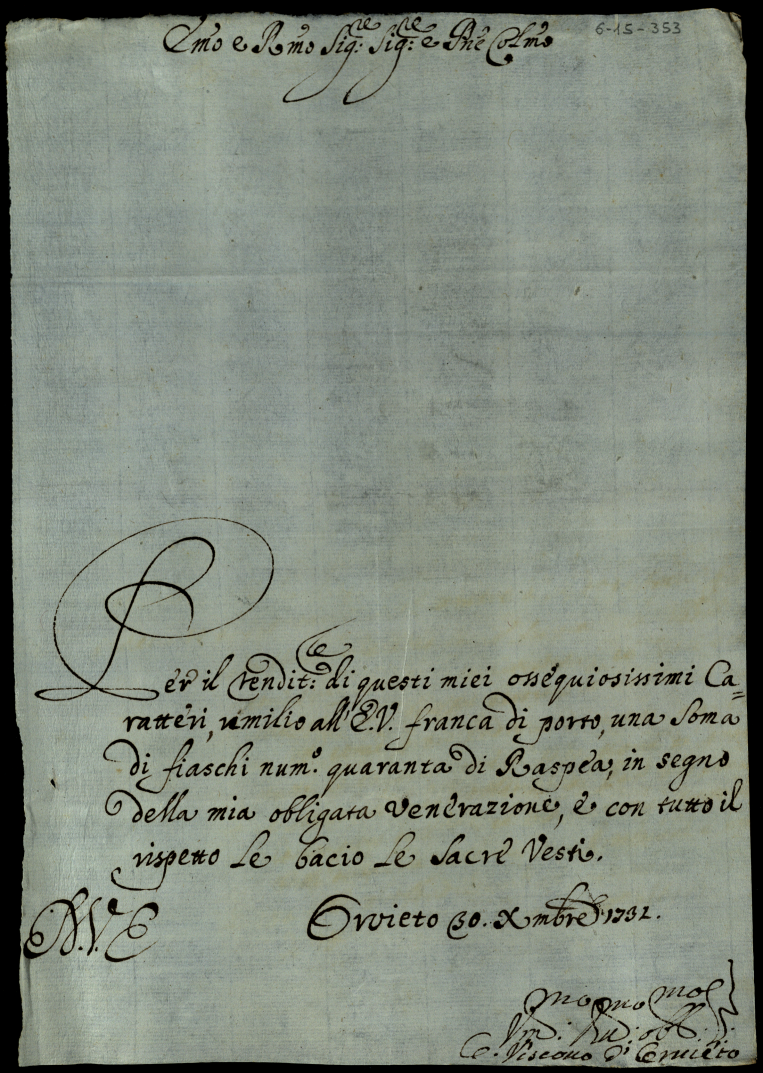 6-15-353
Emo e Rmo Sig:re Sig:re e Pne Colmo
Per il rendit:re di questi miei ossequiosissimi Ca=
ratteri, umilio all'E.V. franca di porto, una Soma
di fiaschi num.o quaranta di Raspea, in segno
della mia obligata venerazione, e con tutto il
rispetto Le bacio Le Sacre Vesti.
Orvieto 30. Xmbre 1731.
A.V.E
mo mo mo
Um: Du: obl:
C. Vescovo di Orvieto